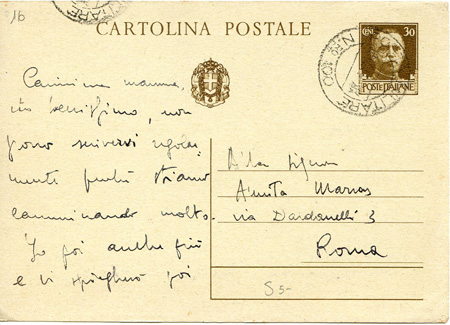 16
CARTOLINA POSTALE
CENT. 30
POSTE ITALIANE
MILITARE
N.RO 100
Carissima mamma,
sto benissimo, non
posso scrivervi regolar
mente perché stiamo
camminando molto.
Io poi anche più
e vi spiegherò poi
Alla Signora
Anita
via Dardanelli 3
Roma
S 5-